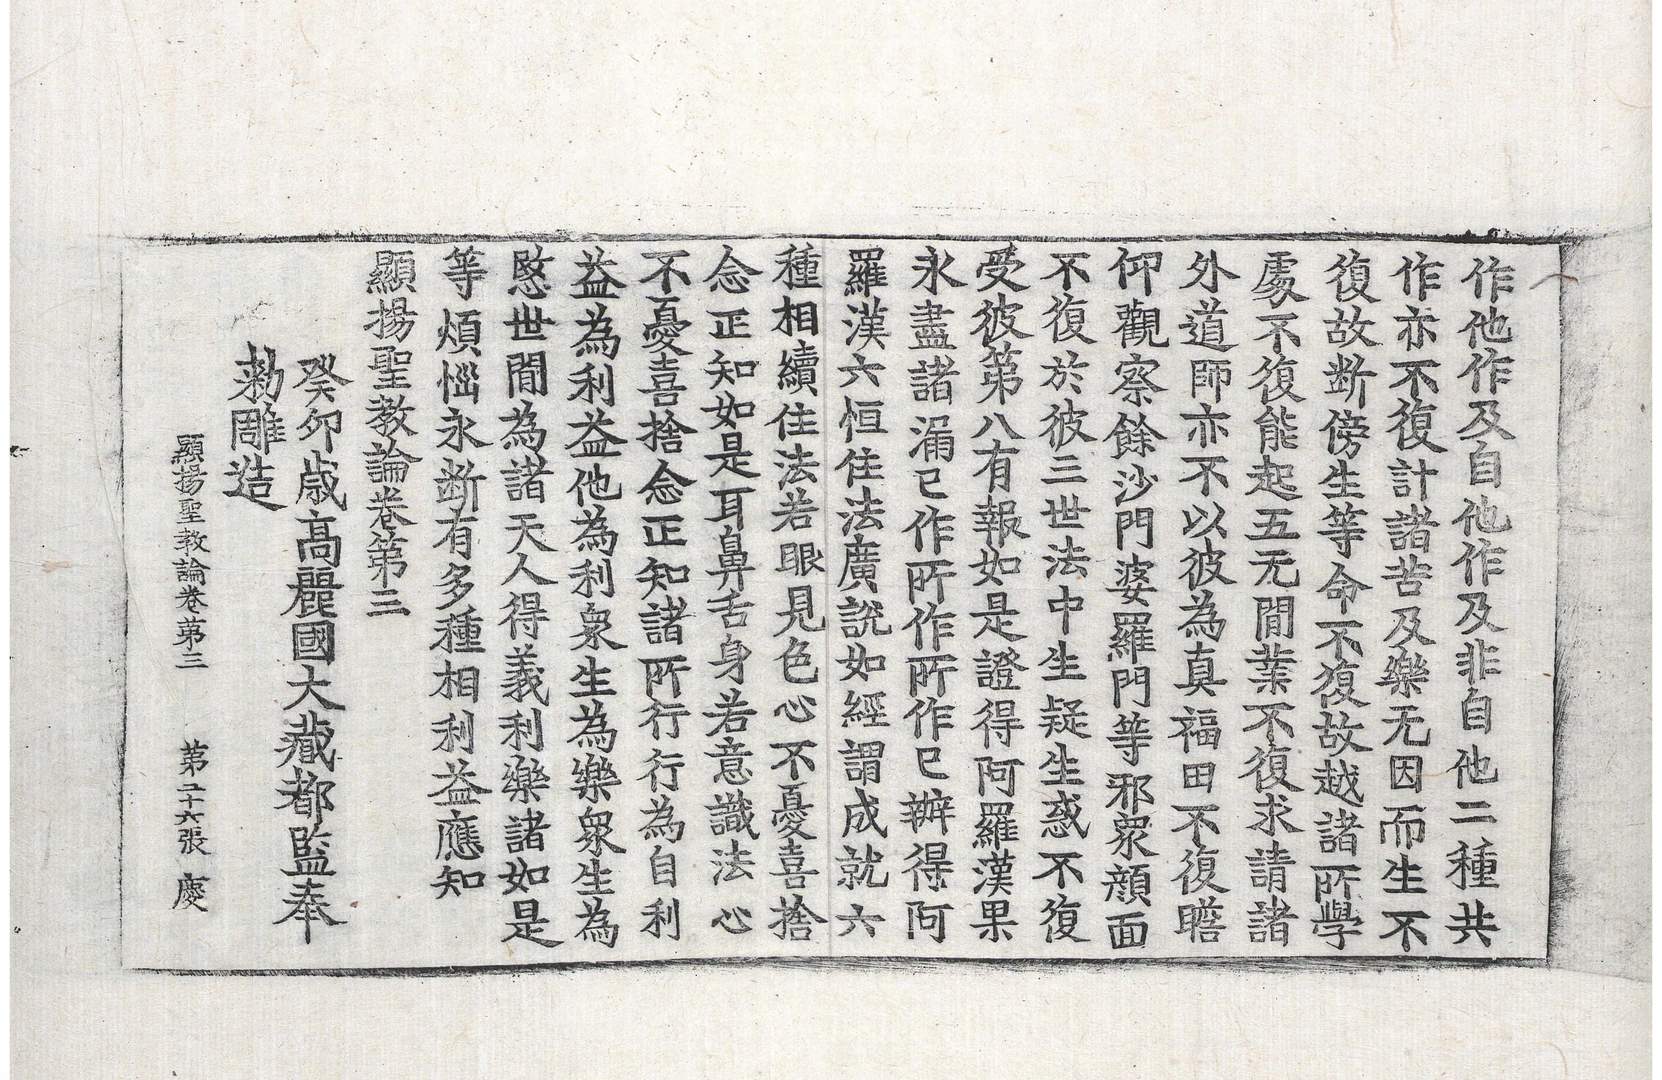 作他作及自他作及非自他二種共
作亦不復計諸苦及樂无因而生不
復故断傍生等命不復故越諸所學
處不復能起五无閒業不復求請諸
外道師亦不以彼為真福田不復瞻
仰觀察餘沙門婆羅門等邪衆顔面
不復於彼三世法中生疑生惑不復
受彼第八有報如是證得阿羅漢果
永盡諸漏已作所作所作已辦得阿
羅漢六恒住法廣說如經謂成就六
種相續住法若眼見色心不憂喜捨
念正知如是耳鼻舌身若意識法心
不憂喜捨念正知諸所行行為自利
益為利益他為利衆生為樂衆生為
愍世閒為諸天人得義利樂諸如是
等煩惱永断有多種相利益應知
顯揚聖教論卷第三
癸卯歲高麗國大藏都監奉
勅雕造
顯揚聖教論卷第三 第二十六張 慶